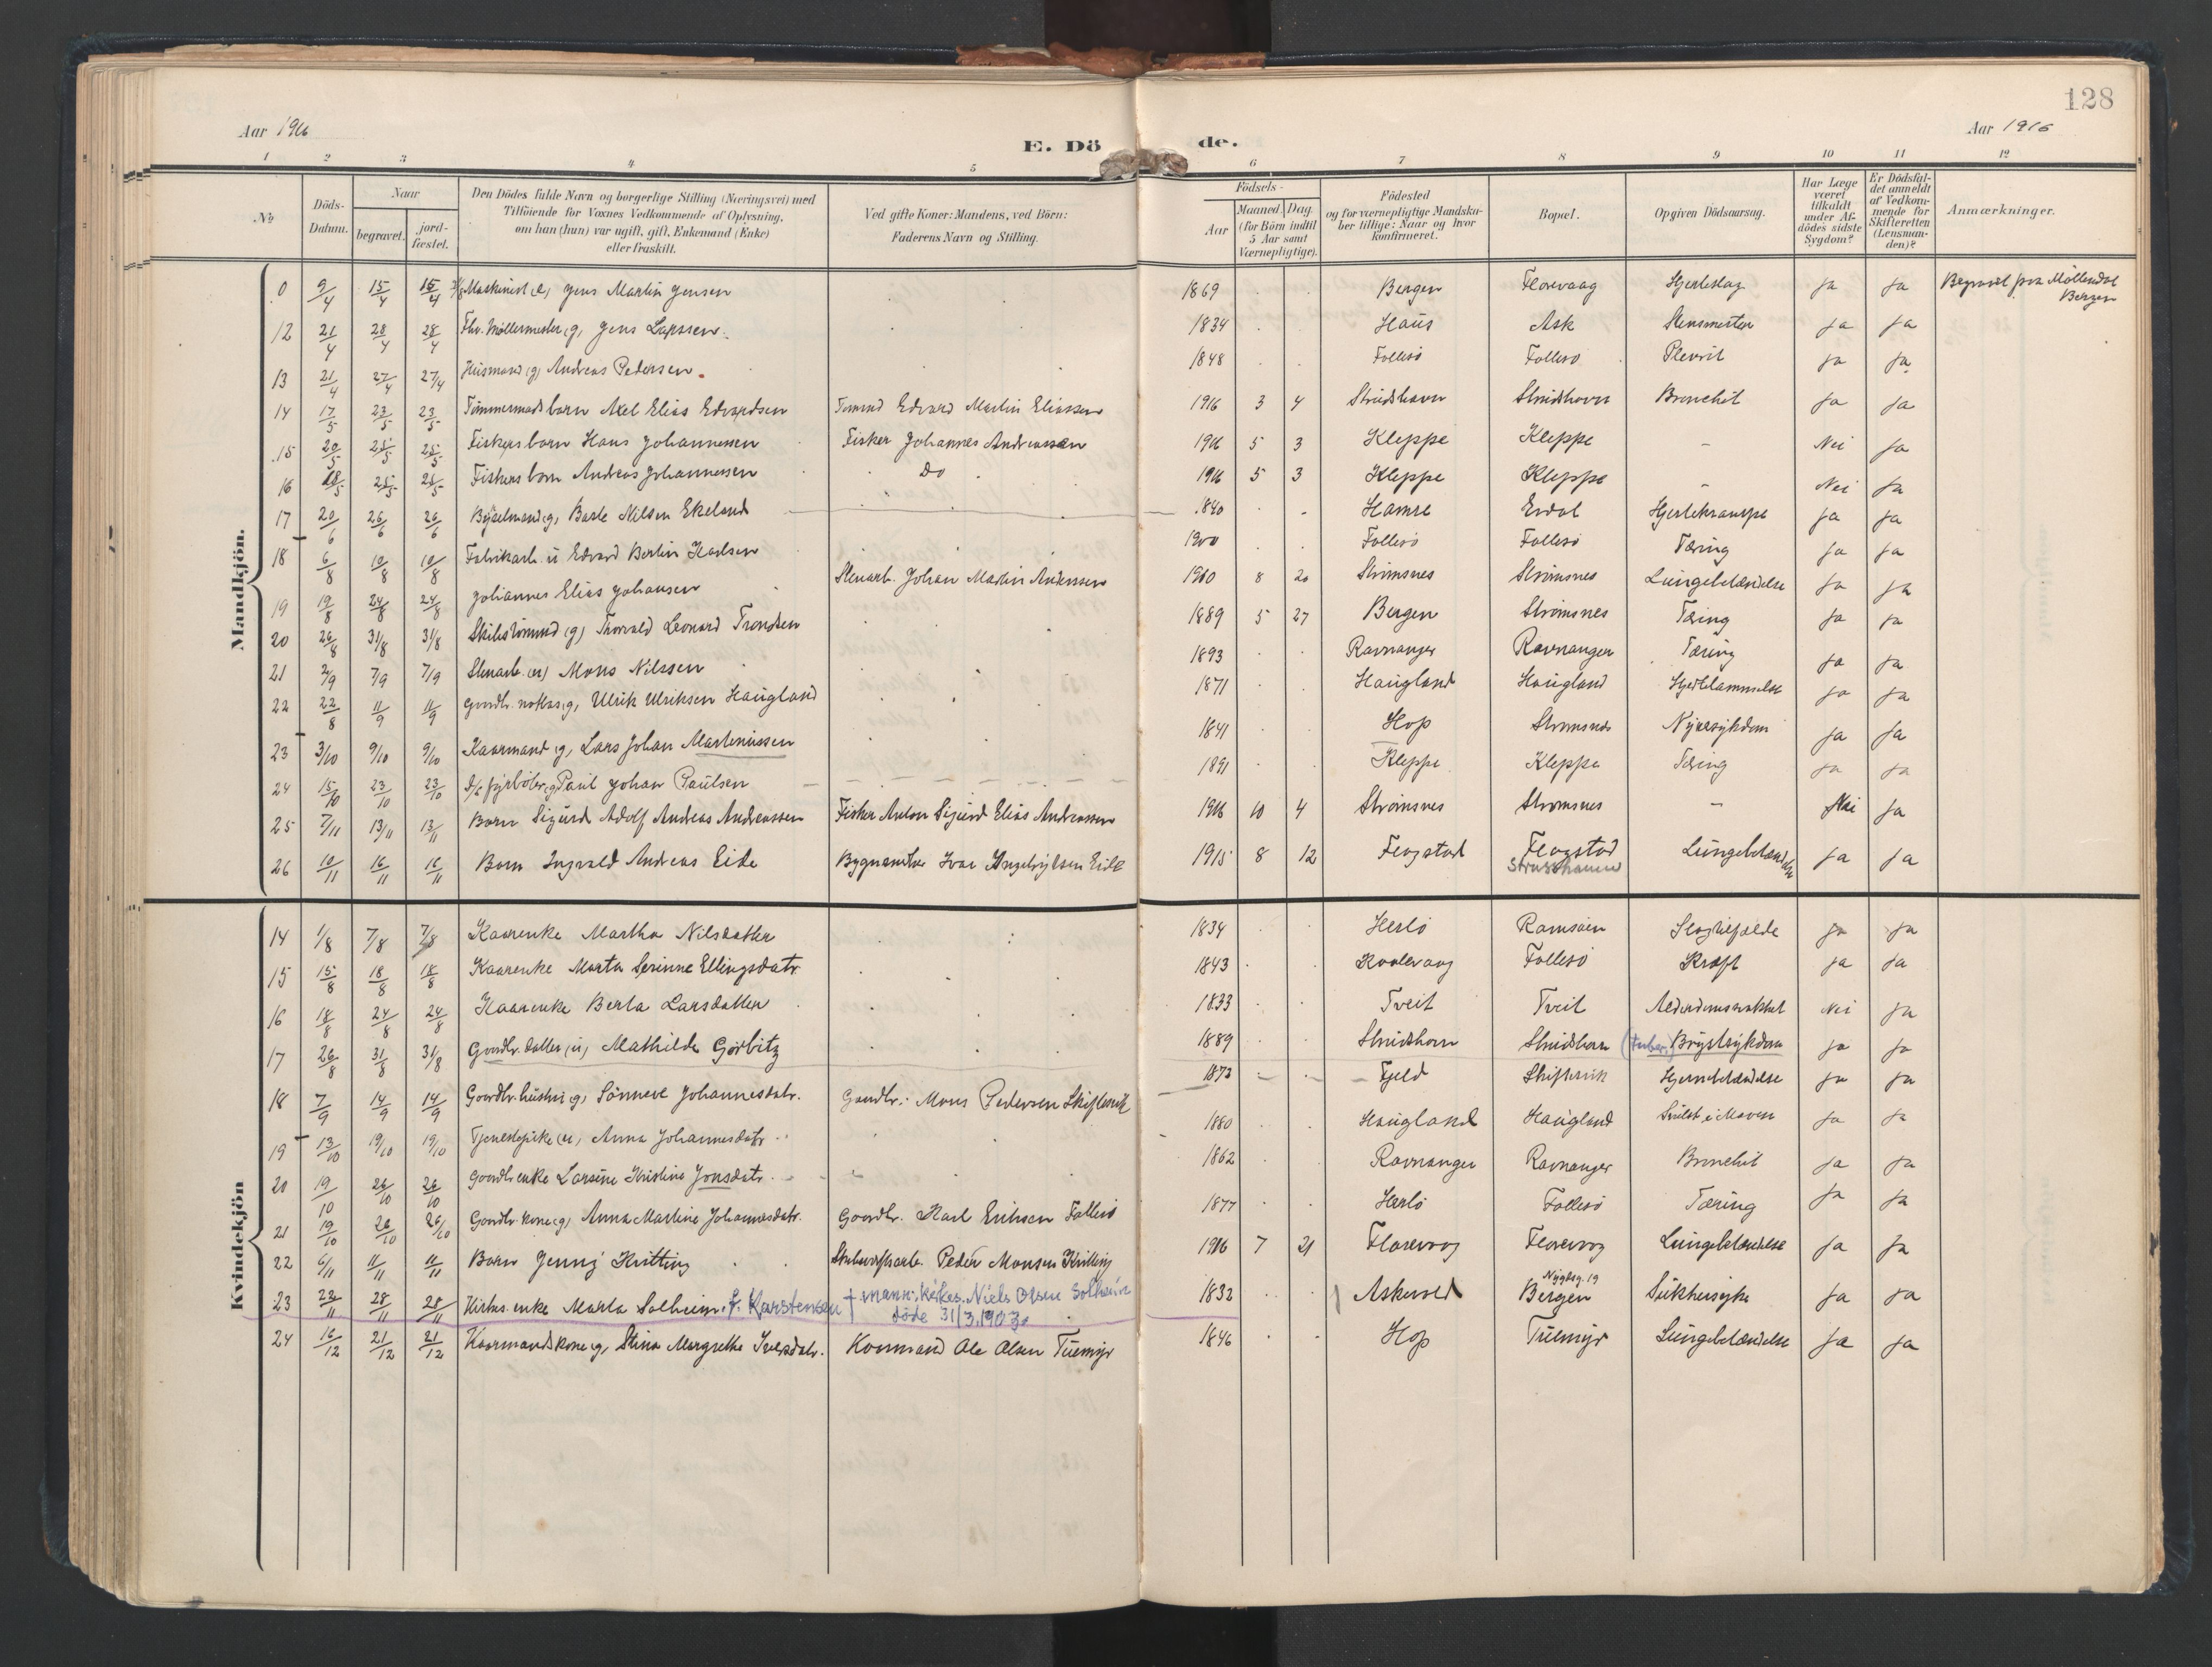 128
Aar 1916
E. Dö
de.
Aar 1916
1 2 3 4 5 6 7 8 9 10 11 12
No
Döds-Datum.
Naar
begravet.
jord-fæstet.
Den Dödes fulde Navn og borgerlige Stilling (Næringsvei) med
Tilföiende for Voxnes Vedkommende af Oplysning,
om han (hun) var ugift, gift, Enkemand (Enke)
eller fraskilt.
Ved gifte Koner: Mandens, ved Börn:
Faderens Navn og Stilling.
Födsels-
Aar
Maaned. Dag.
(for Börn indtil
5 Aar samt
Værnepligtige).
Födested
og for værnepligtige Mandska-
ber tillige: Naar og hvor
konfirmeret.
Bopæl.
Opgiven Dödsaarsag.
Har Læge
været
tilkaldt
under Af-
dödes sidste
Sygdom?
Er Dödsfal-
det anmeldt
af Vedkom-
mende for
Skifteretten
(Lensman-
den)?
Anmærkninger.
Mandkjön.
0 9/4 15/4 15/4 Maskinist (e) Jens Martin Jensen 1869 Bergen Florevaag Hjerteslag Ja Ja Begravet paa Möllendal Bergen
12 21/4 28/4 28/4 Fhv. Möllermester (g) Jens Larssen 1834 Haus Ask Ja Ja
13 21/4 27/4 27/4 Husmand (g) Andreas Pedersen 1848 Follesö Follesö Plevrit Ja Ja
14 17/5 23/5 23/5 Tömmermads barn Axel Elias Edvardsen Tömmd Edvard Martin Eliassen 1916 3 4 Strudshavn Strudshavn Bronchit Ja Ja
15 20/5 25/5 25/5 Fiskers barn Hans Johannessen Fisker Johannes Andreassen 1916 5 3 Kleppe Kleppe - Nei Ja
16 18/5 25/5 25/5 Fiskers barn Andreas Johannessen Do 1916 5 3 Kleppe Kleppe - Nei Ja
17 20/6 26/6 26/6 Böselmand (g) Barle Nilsen Ekeland 1840 Hamre Erdal Hjertekrampe Ja Ja
18 6/8 10/8 10/8 Fabrikarb. u Edvard Bertin Karlsen 1900 Follesö Follesö Tæring Ja Ja
19 19/8 24/8 24/8 Johannes Elias Johansen Stenarb. Johan Martin Andersen 1910 8 20 Strömsnes Strömsnes Lungebetændelse Ja Ja
20 26/8 31/8 31/8 (g) Thorvald Leonard Trondsen 1889 5 27 Bergen Strömsnes Tæring Ja Ja
21 2/9 7/9 7/9 Stenarb. (u) Mons Nilssen 1893 Ravnanger Ravnanger Tæring Ja Ja
22 22/8 11/9 11/9 Gaardbr. (g) Ulrik Ulriksen Haugland 1871 Haugland Haugland Hjertelammelse Ja Ja
23 3/10 9/10 9/10 Kaarmand (g) Lars Johan Martinussen 1841 Hop Strömsnes Nyresykdom Ja Ja
24 15/10 23/10 23/10 D/s fyrböter (g) Paul Johan Paulsen 1891 Kleppe Kleppe Tæring Ja Ja
25 7/11 13/11 13/11 Barn Sigurd Adolf Andreas Andreassen Fisker Anton Sigurd Elias Andreassen 1916 10 4 Strömsnes Strömsnes - Nei Ja
26 10/11 16/11 16/11 Barn Ingvald Andreas Eide Bygmester Ivar Ingebrigtsen Eide 1915 8 12 Flagstad Flagstad Strusshamn Lungebetændelse Ja Ja
Kvindekjön
14 1/8 7/8 7/8 Kaarenke Martha Nilsdatter 1834 Herlö Ramsöen Slagtilfælde Ja Ja
15 15/8 18/8 18/8 Kaarenke Marta Serinne Ellingsdatr. 1843 Follesö Kræft Ja Ja
16 18/8 24/8 24/8 Kaarenke Berta Larsdatter 1833 Tveit Tveit Alderdomssvakhet Nei Ja
17 26/8 31/8 31/8 Gaardbr. datter (u) Mathilde Görbitz 1889 Strudshavn Strudshavn (tuber.) Brystsykdom Ja Ja
18 7/9 14/9 14/9 Gaardbr. hustru (g) Sönneve Johannesdatr. Gaardbr. Mons Pedersen Skiftesvik 1873 Fjeld Skiftesvik Hjernebetændelse Ja Ja
19 13/10 19/10 19/10 Tjenestepike (u) Anna Johannesdatr. 1880 Haugland Haugland Ja Ja
20 19/10 26/10 26/10 Gaardbr enke Larsine Kristine Jonsdatr. 1862 Ravnanger Ravnanger Bronchit Ja Ja
21 19/10 26/10 26/10 Gaardbr. kone (g) Anna Martine Johannesdatr. Gaardbr. Karl Eriksen Follesö 1877 Herlö Follesö Tæring Ja Ja
22 6/11 11/11 11/11 Barn Jenny Kritting Peder Monsen Kritting 1916 7 21 Florevaag Florevaag Lungebetændelse Ja Ja
23 22/11 28/11 28/11 Kirkes. enke Marta Solheim, f. Karstensen † mann: kirkes. Niels Olsen Solheim döde 31/3 1903. 1832 Askevold Nygtsg. 19 Bergen Sukkersyke Ja Ja
24 16/12 21/12 21/12 Kaarmandskone (g) Stina Margrethe Iversdatr. Kaarmand Ole Olsen Tuemyr 1846 Hop Tuemyr Lungebetændelse Ja Ja